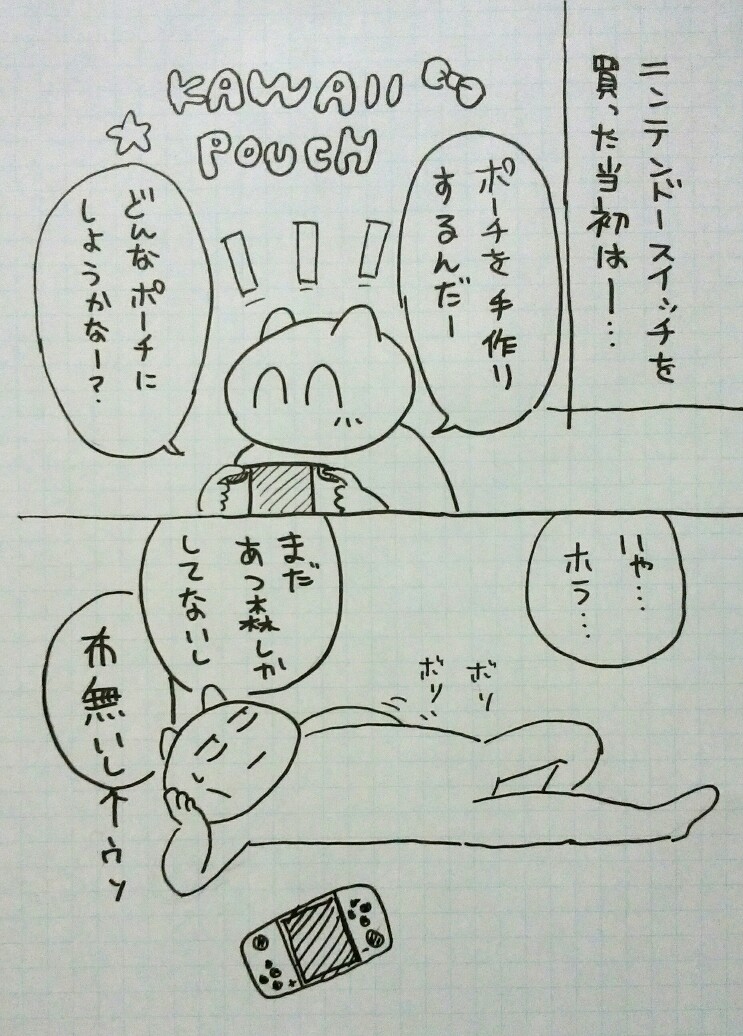 ニンテンドースイッチを
買った当初はー…
KAWAII
POUCH
ポーチを手作り
するんだー
!!!
どんなポーチに
しようかなー?
いや…
ホラ…
まだ
あつ森しか
してないし
布無いし
↑ウソ
ボリ
ボリ